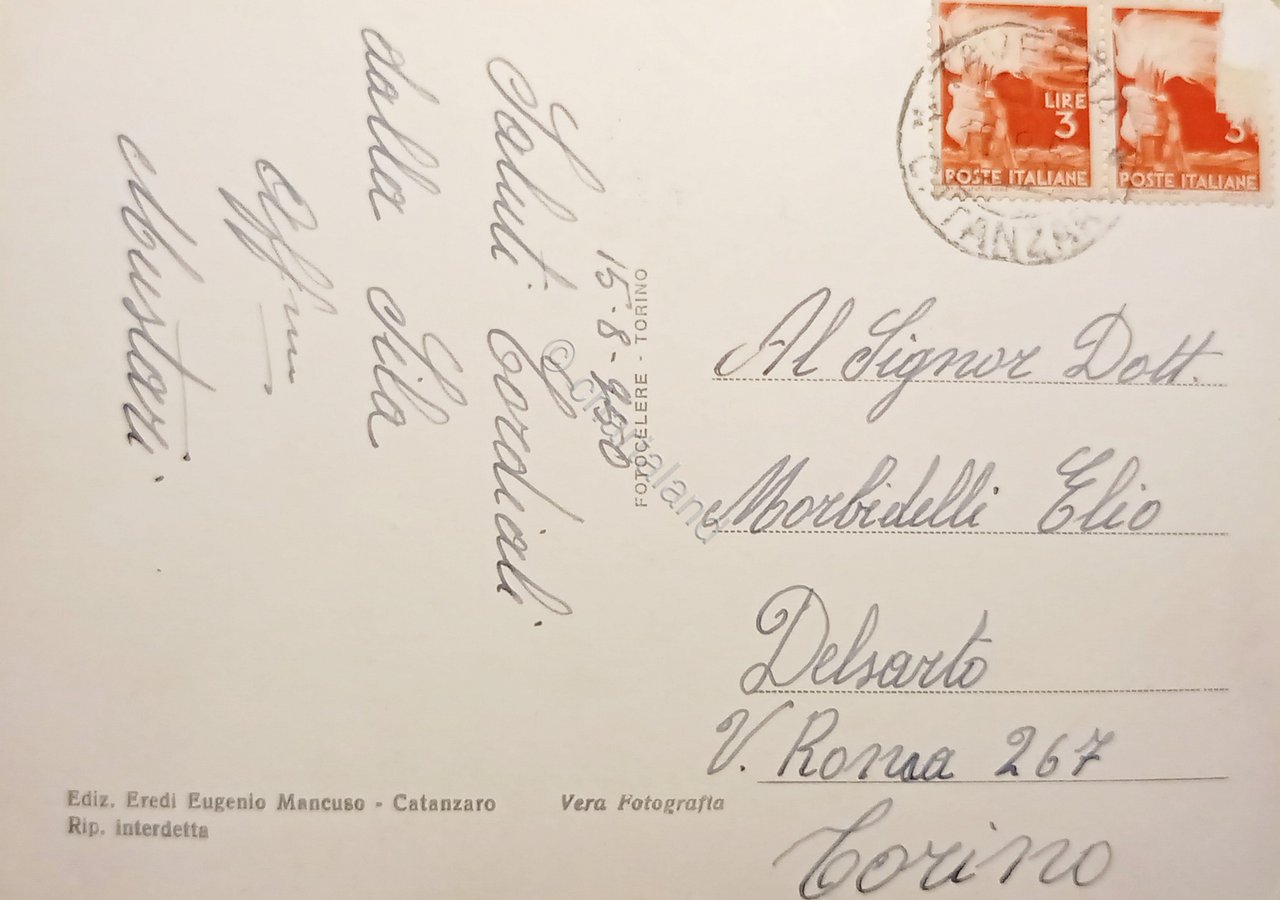 15-8-950
Saluti Cordiali
dalla Sila
Mustari.
FOTOCELERE - TORINO
LIRE
3
POSTE ITALIANE
3
POSTE ITALIANE
Al Signor Dott.
Morbidelli Elio
Delsarto
V. Roma 267
Torino
Ediz. Eredi Eugenio Mancuso - Catanzaro
Rip. interdetta
Vera Fotografia